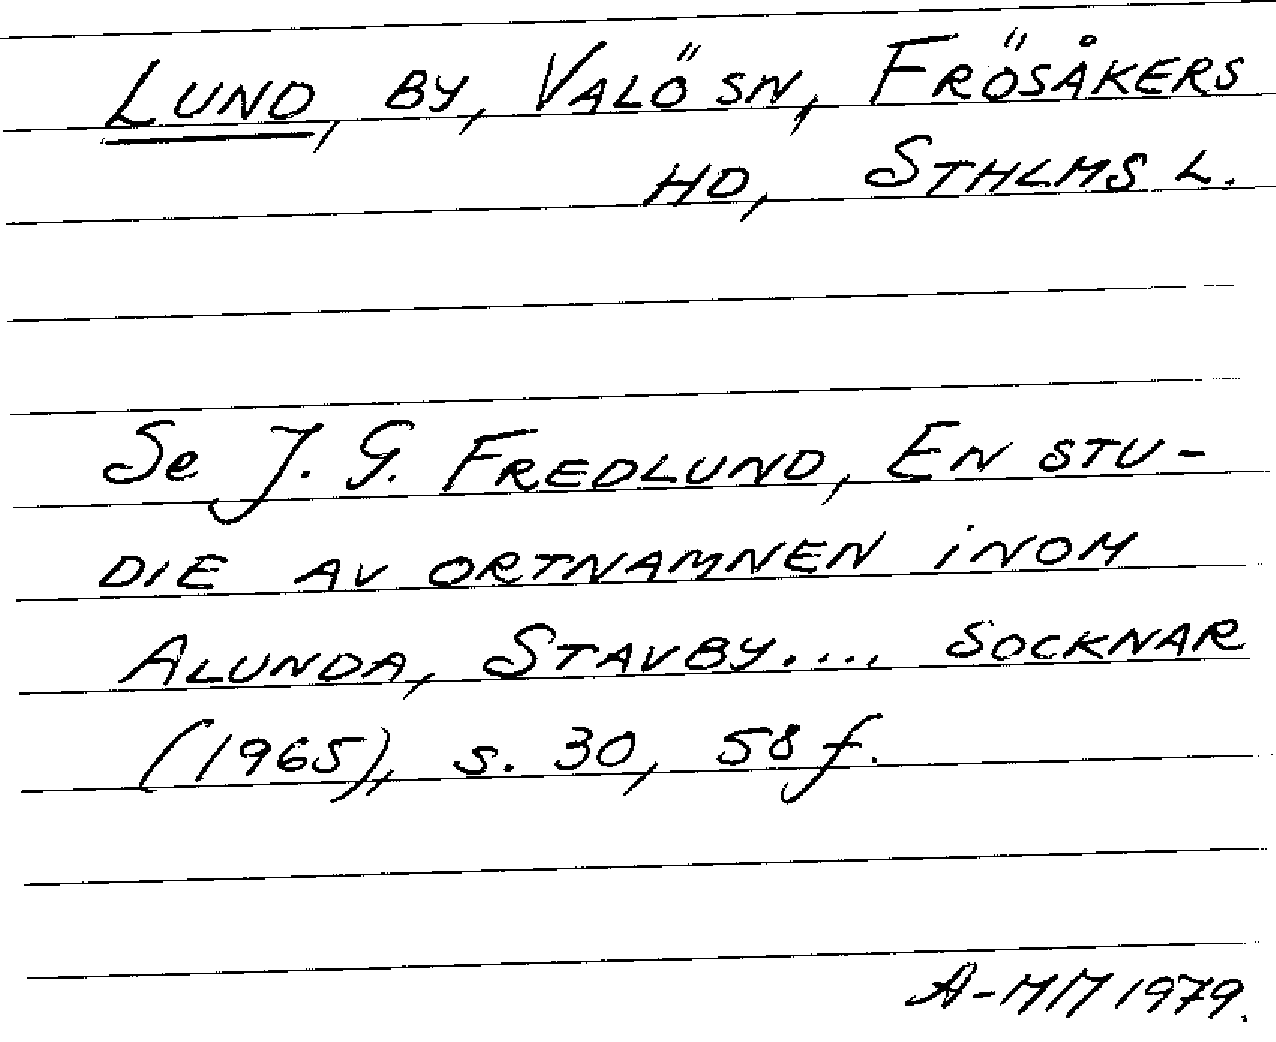 LUND, BY, VALÖ SN, FRÖSÅKERS
HD, STHLMS L.
Se J. G. FREDLUND, EN STU-
DIE AV ORTNAMNEN INOM
ALUNDA, STAVBY.... SOCKNAR
(1965), s. 30, 58 f.
A-MM 1979.